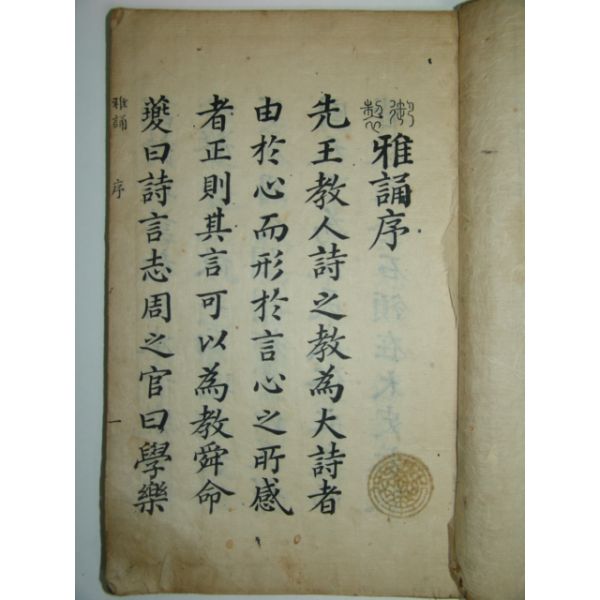 御製
雅誦序
先王教人詩之教為大詩者
由於心而形於言心之所感
者正則其言可以為教舜命
夔曰詩言志周之官曰學樂
雅誦 序 一